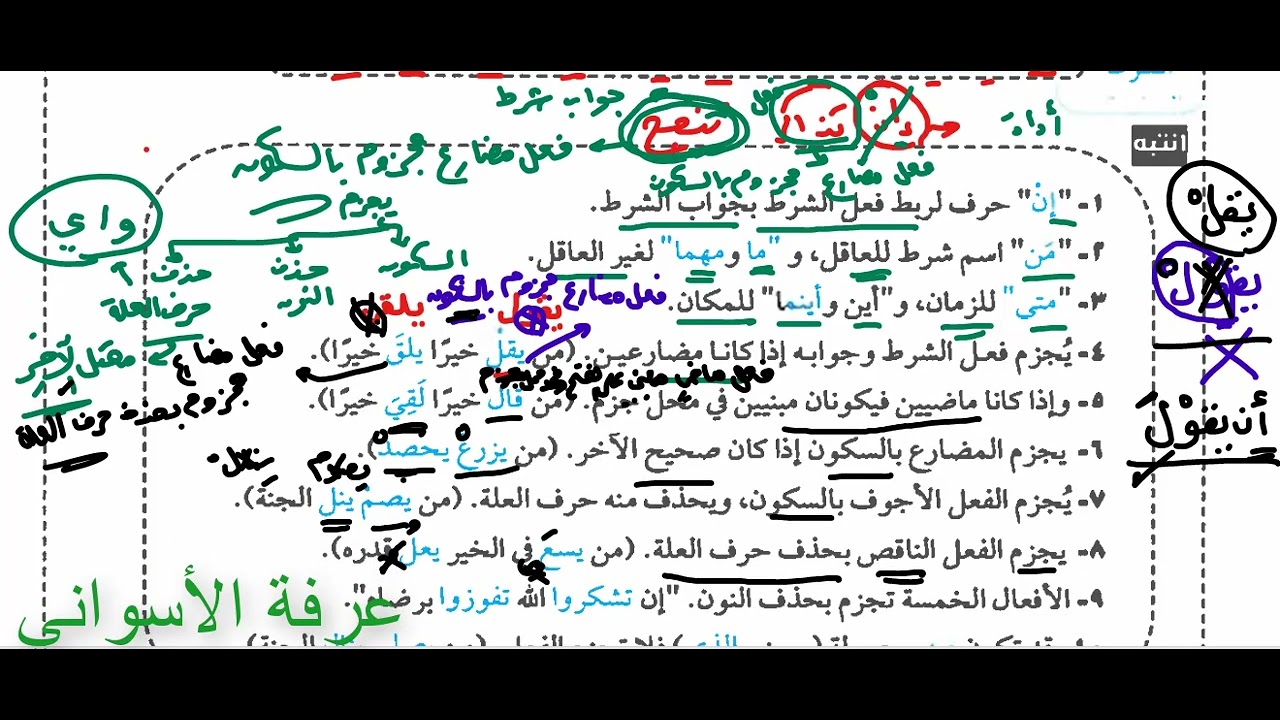 أداة
إن
تذاكر
تنجح
فعل
جواب شرط
انتبه
فعل مضارع مجزوم بالسكون
فعل مضارع مجزوم بالسكون
١- "إنْ" حرف لربط فعل الشرط بجواب الشرط.
يقلْ
يجزم
واي
٢- "مَن" اسم شرط للعاقل، و "ما ومهما" لغير العاقل.
السكون
حذف النون
حذف حرف العلة
يقول
فعل مضارع مجزوم بالسكون
٣- "متي" للزمان، و"أين وأينما" للمكان.
٤- يُجزم فعل الشرط وجوابه إذا كانا مضارعين. (من يقلْ خيرًا يلقَ خيرًا).
معتل لآخر
فعل مضارع مجزوم بحذف حرف العلة
٥- وإذا كانا ماضيين فيكونان مبنيين في محل جزم. (من قال خيرًا لَقِيَ خيرًا).
أن يقولَ
٦- يجزم المضارع بالسكون إذا كان صحيح الآخر. (من يزرعْ يحصدْ).
يصوم
٧- يُجزم الفعل الأجوف بالسكون، ويحذف منه حرف العلة. (من يصمْ ينل الجنةَ).
٨- يجزم الفعل الناقص بحذف حرف العلة. (من يسعَ في الخير يعل قدره).
٩- الأفعال الخمسة تجزم بحذف النون. "إن تشكروا الله تفوزوا برضاه".
عرفة الأسواني